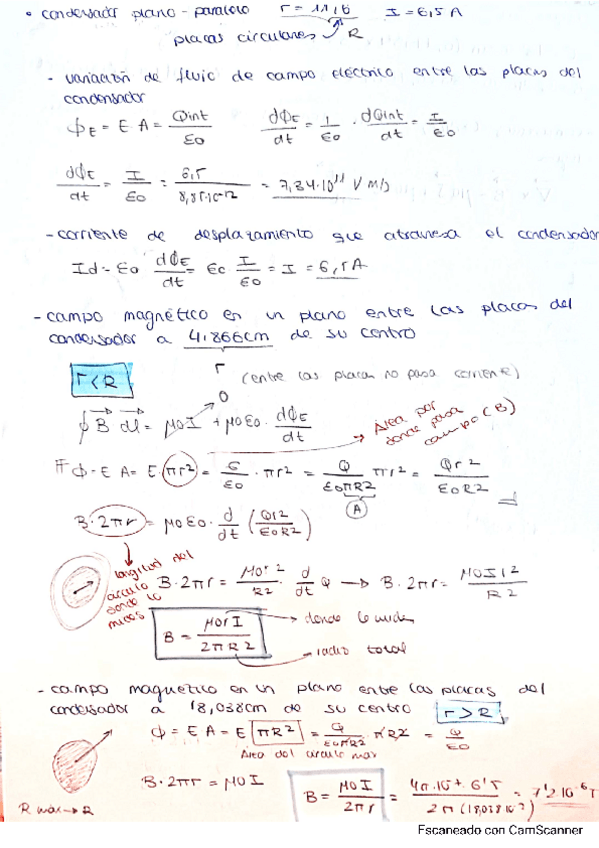 • condensador plano-paralelo r = 11,16 I = 6,5 A
placas circulares R
- variación de flujo de campo eléctrico entre las placas del
condensador
ϕE = E A = Qint/ε0 dϕE/dt = 1/ε0 · dQint/dt = I/ε0
dϕE/dt = I/ε0 = 6,5/8,85·10-12 = 7,34·10¹¹ V m/s
- corriente de desplazamiento que atraviesa el condensador
Id = ε0 dϕE/dt = ε0 I/ε0 = I = 6,5 A
- campo magnético en un plano entre las placas del
condensador a 4,866cm de su centro
r
r < R (entre las placas no pasa corriente)
0
∮ B dl = μ0 I + μ0 ε0 · dϕE/dt
Área por
donde pasa
campo (B)
ϕ = E A = E · πr² = σ/ε0 · πr² = Q/ε0πR2 πr² = Qr²/ε0R2
(A)
B · 2πr = μ0 ε0 · d/dt (Qr2/ε0R2)
longitud del
círculo
donde lo
mides
B · 2πr = μ0r²/R2 · d/dt Q → B · 2πr = μ0 I r²/R2
B = μ0 r I/2πR2 → donde lo mides
→ radio total
- campo magnético en un plano entre las placas del
condensador a 18,038cm de su centro r > R
ϕ = E A = E πR2 = Q/ε0πR2 · πR2 = Q/ε0
Área del círculo max
B · 2πr = μ0 I
B = μ0 I/2πr = 4π·10-7 · 6'5/2π (18,038·10-2) = 7'2·10⁻⁶ T
R max → R
Escaneado con CamScanner